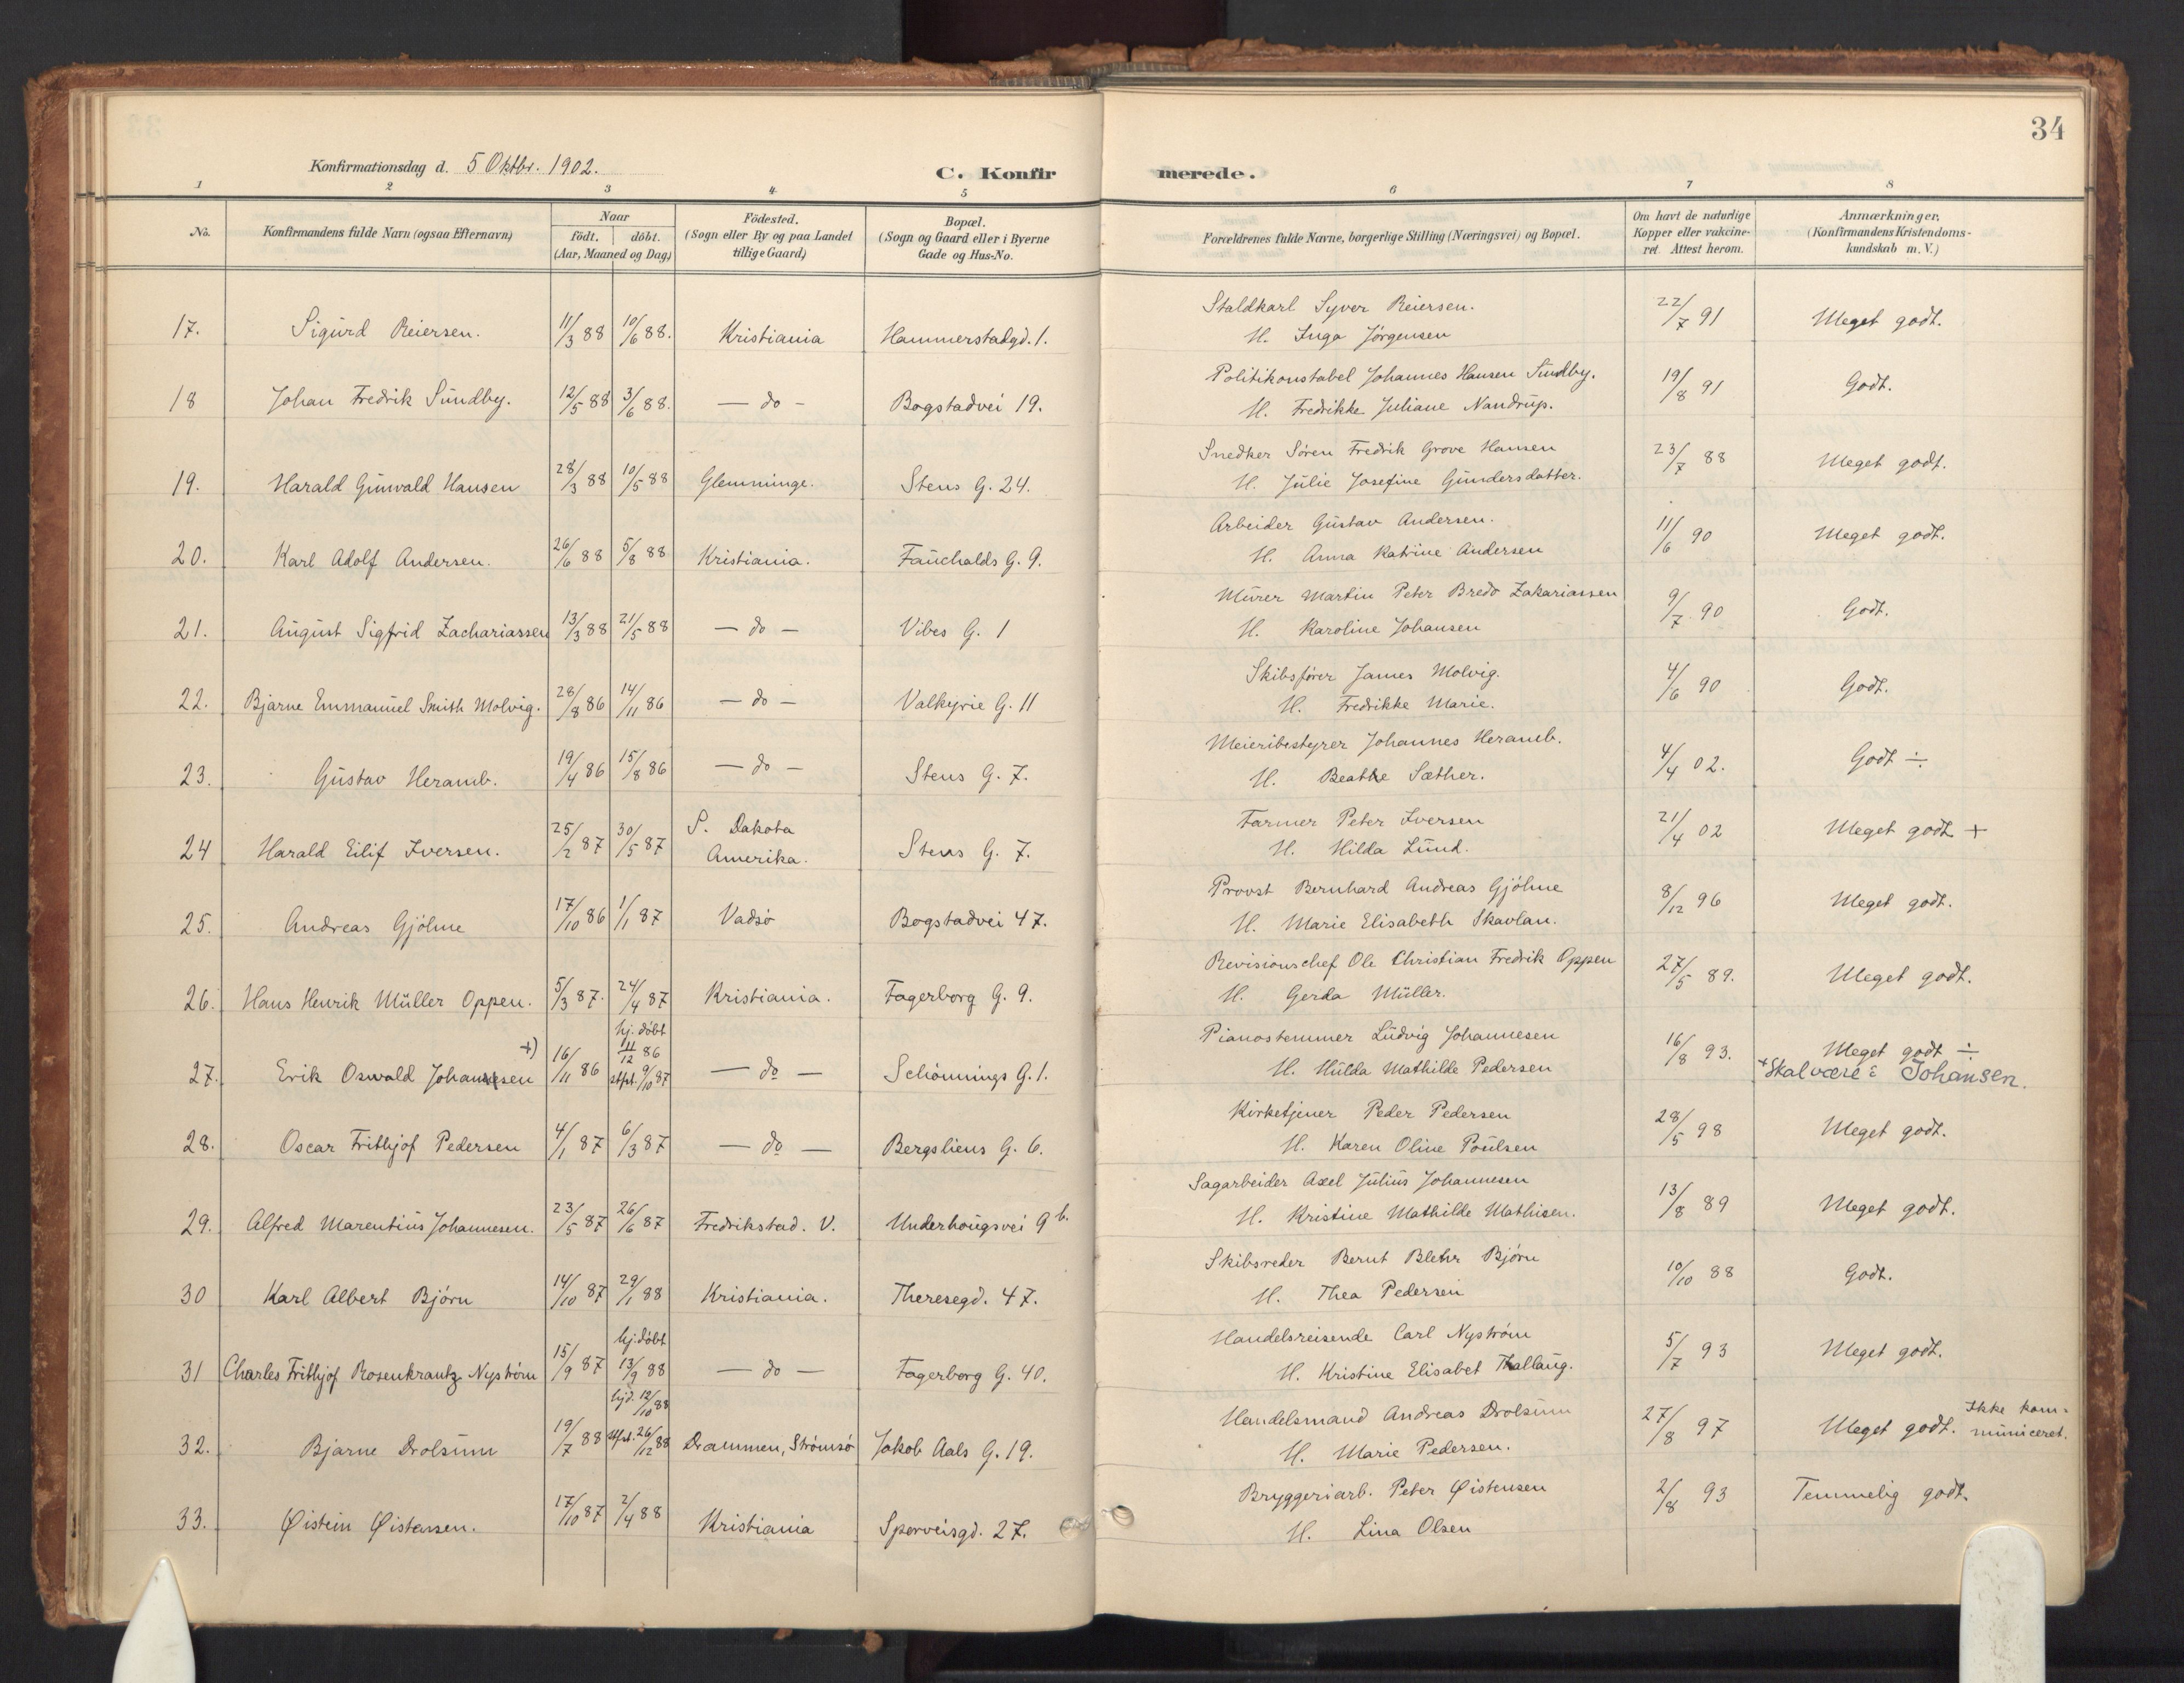 34
Konfirmationsdag d. 5 Oktbr. 1902.
C. Konfirmerede.
1 2 3 4 5 6 7 8
No.
Konfirmandens fulde Navn (ogsaa Efternavn)
Naar
födt. döbt.
(Aar, Maaned og Dag)
Födested.
(Sogn eller By og paa Landet
tillige Gaard)
Bopæl.
(Sogn og Gaard eller i Byerne
Gade og Hus-No.
Forældrenes fulde Navne, borgerlige Stilling (Næringsvei) og Bopæl.
Om havt de naturlige
Kopper eller vakcine-
ret Attest herom.
Anmærkninger.
(Konfirmandens Kristendoms-
kundskab m. V.)
17. Sigurd Reiersen. 11/3 88 10/6 88. Kristiania Hammerstadgd. 1. Staldkarl Syver Reiersen. 22/7 91 Meget godt.
H. Inga Jørgensen
18 Johan Fredrik Sundby. 12/5 88 3/6 88. — do - Bogstadvei 19. Politikonstabel Johannes Hansen Sundby. 19/8 91 Godt.
H. Fredrikke Juliane Nandrup.
19. Harald Gunvald Hansen 28/3 88 10/5 88 Glemminge. Stens G. 24. Snedker Søren Fredrik Grove Hansen 23/7 88 Meget godt.
H. Julie Josefine Gundersdatter.
20. Karl Adolf Andersen. 26/6 88 5/8 88 Kristiania. Fauchalds G. 9. Arbeider Gustav Andersen. 11/6 90 Meget godt.
H. Anna Katrine Andersen
21. August Sigfrid Zachariassen 13/3 88 21/5 88 — do — Vibes G. 1 Murer Martin Peter Bredo Zakariassen 9/7 90 Godt.
H. Karoline Johansen
22. Bjarne Emmanuel Smith Molvig. 28/8 86 14/11 86 — do — Valkyrie G. 11 Skibsfører James Molvig. 4/6 90 Godt.
H. Fredrikke Marie.
23. Gustav Heramb. 19/4 86 15/8 86 — do — Stens G. 7. Meieribestyrer Johannes Heramb. 4/4 02. Godt ÷
H. Beathe Sæther.
24 Harald Eilif Iversen. 25/2 87 30/5 87 S. Dakota Amerika. Stens G. 7. Farmer Peter Iversen 21/4 02 Meget godt +
H. Hilda Lund.
25. Andreas Gjölme 17/10 86 1/1 87 Vadsø Bogstadvei 47. Provst Bernhard Andreas Gjölme 8/12 96 Meget godt.
H. Marie Elisabeth Skavlan.
26. Hans Henrik Müller Oppen. 5/3 87. 24/4 87 Kristiania. Fagerborg G. 9. Revisionschef Ole Christian Fredrik Oppen 27/5 89. Meget godt.
H. Gerda Müller.
27. Erik Oswald Johannesen +) 16/11 86 hj. döbt 11/12 86 stfst. 9/10 87 — do — Schönnings G. 1. Pianostemmer Ludvig Johannesen 16/8 93. Meget godt ÷
H. Hulda Mathilde Pedersen + Skal være: Johansen.
28. Oscar Frithjof Pedersen 4/1 87 6/3 87 — do — Bergsliens G. 6. Kirketjener Peder Pedersen 28/5 98 Meget godt.
H. Karen Oline Poulsen
29. Alfred Marentius Johannesen. 23/5 87 26/6 87 Fredrikstad. V. Underhaugsvei 9 b. Sagarbeider Axel Julius Johannesen 13/8 89 Meget godt.
H. Kristine Mathilde Mathisen.
30 Karl Albert Bjørn 14/10 87 29/1 88 Kristiania. Theresegd. 47. Skibsreder Bernt Blehr Bjørn 10/10 88 Godt.
H. Thea Pedersen
31 Charles Frithjof Rosenkrantz Nystrøm 15/9 87 hj. döbt 13/9 88 — do — Fagerborg G. 40. Handelsreisende Carl Nystrøm 5/7 93 Meget godt.
H. Kristine Elisabet Thallaug.
32. Bjarne Drolsum 19/7 88 hjd. 12/10 88 stfst. 26/12 88 Drammen, Strømsø Jakob Aals G. 19. Handelsmand Andreas Drolsum 27/8 97 Meget godt. Ikke kom=
municeret.
H. Marie Pedersen.
33. Øistein Øistensen. 17/10 87 2/4 88 Kristiania Sporveisgd. 27. Bryggeriarb. Peter Øistensen 2/8 93 Temmelig godt.
H. Lina Olsen